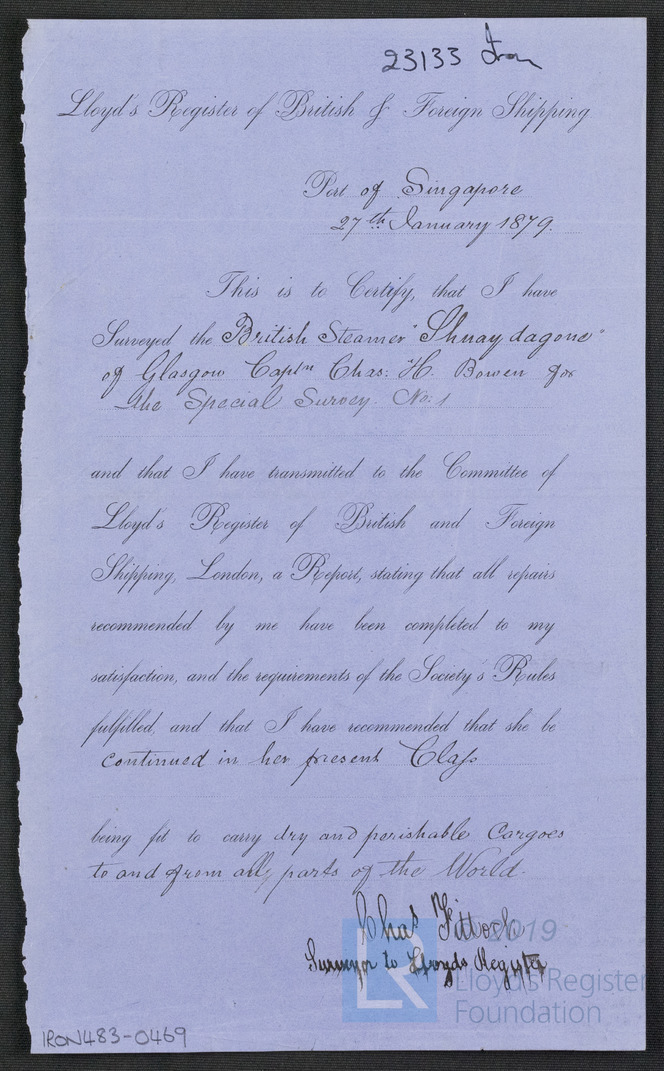 23133 Iron
Lloyd's Register of British & Foreign Shipping
Port of Singapore
27th January 1879.
This is to Certify, that I have
Surveyed the British Steamer "Shuaydagone"
of Glasgow Captn Chas: H. Bowen for
the Special Survey No: 1
and that I have transmitted to the Committee of
Lloyd's Register of British and Foreign
Shipping, London, a Report, stating that all repairs
recommended by me have been completed to my
satisfaction, and the requirements of the Society's Rules
fulfilled, and that I have recommended that she be
continued in her present Class
being fit to carry dry and perishable Cargoes
to and from all parts of the World.
Chas
Surveyor to Lloyds Register
© 2019
LR
Lloyd's Register
Foundation
IRON483-0469